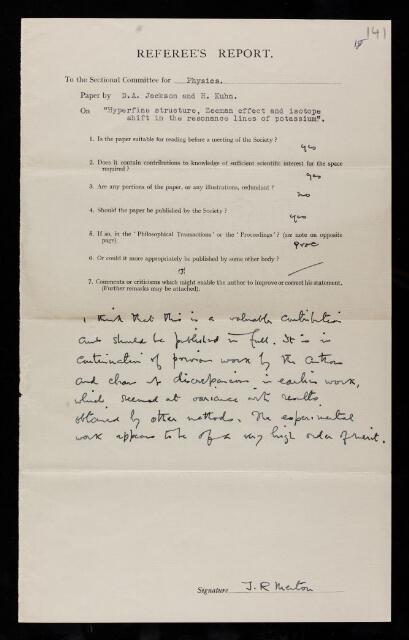 141
REFEREE'S REPORT.
To the Sectional Committee for Physics.
Paper by D.A. Jackson and H. Kuhn.
On "Hyperfine structure, Zeeman effect and isotope
shift in the resonance lines of potassium".
1. Is the paper suitable for reading before a meeting of the Society ?
yes
2. Does it contain contributions to knowledge of sufficient scientific interest for the space
required ?
yes
3. Are any portions of the paper, or any illustrations, redundant ?
no
4. Should the paper be published by the Society ?
yes
5. If so, in the 'Philosophical Transactions' or the 'Proceedings' ? (see note on opposite
page).
Proc
6. Or could it more appropriately be published by some other body ?
7. Comments or criticisms which might enable the author to improve or correct his statement.
(Further remarks may be attached).
I think that this is a valuable contribution
and should be published in full. It is in
continuation of previous work by the authors
and clears up discrepancies in earlier work,
which seemed at variance with results
obtained by other methods. The experimental
work appears to be of a very high order of merit.
Signature T. R Merton